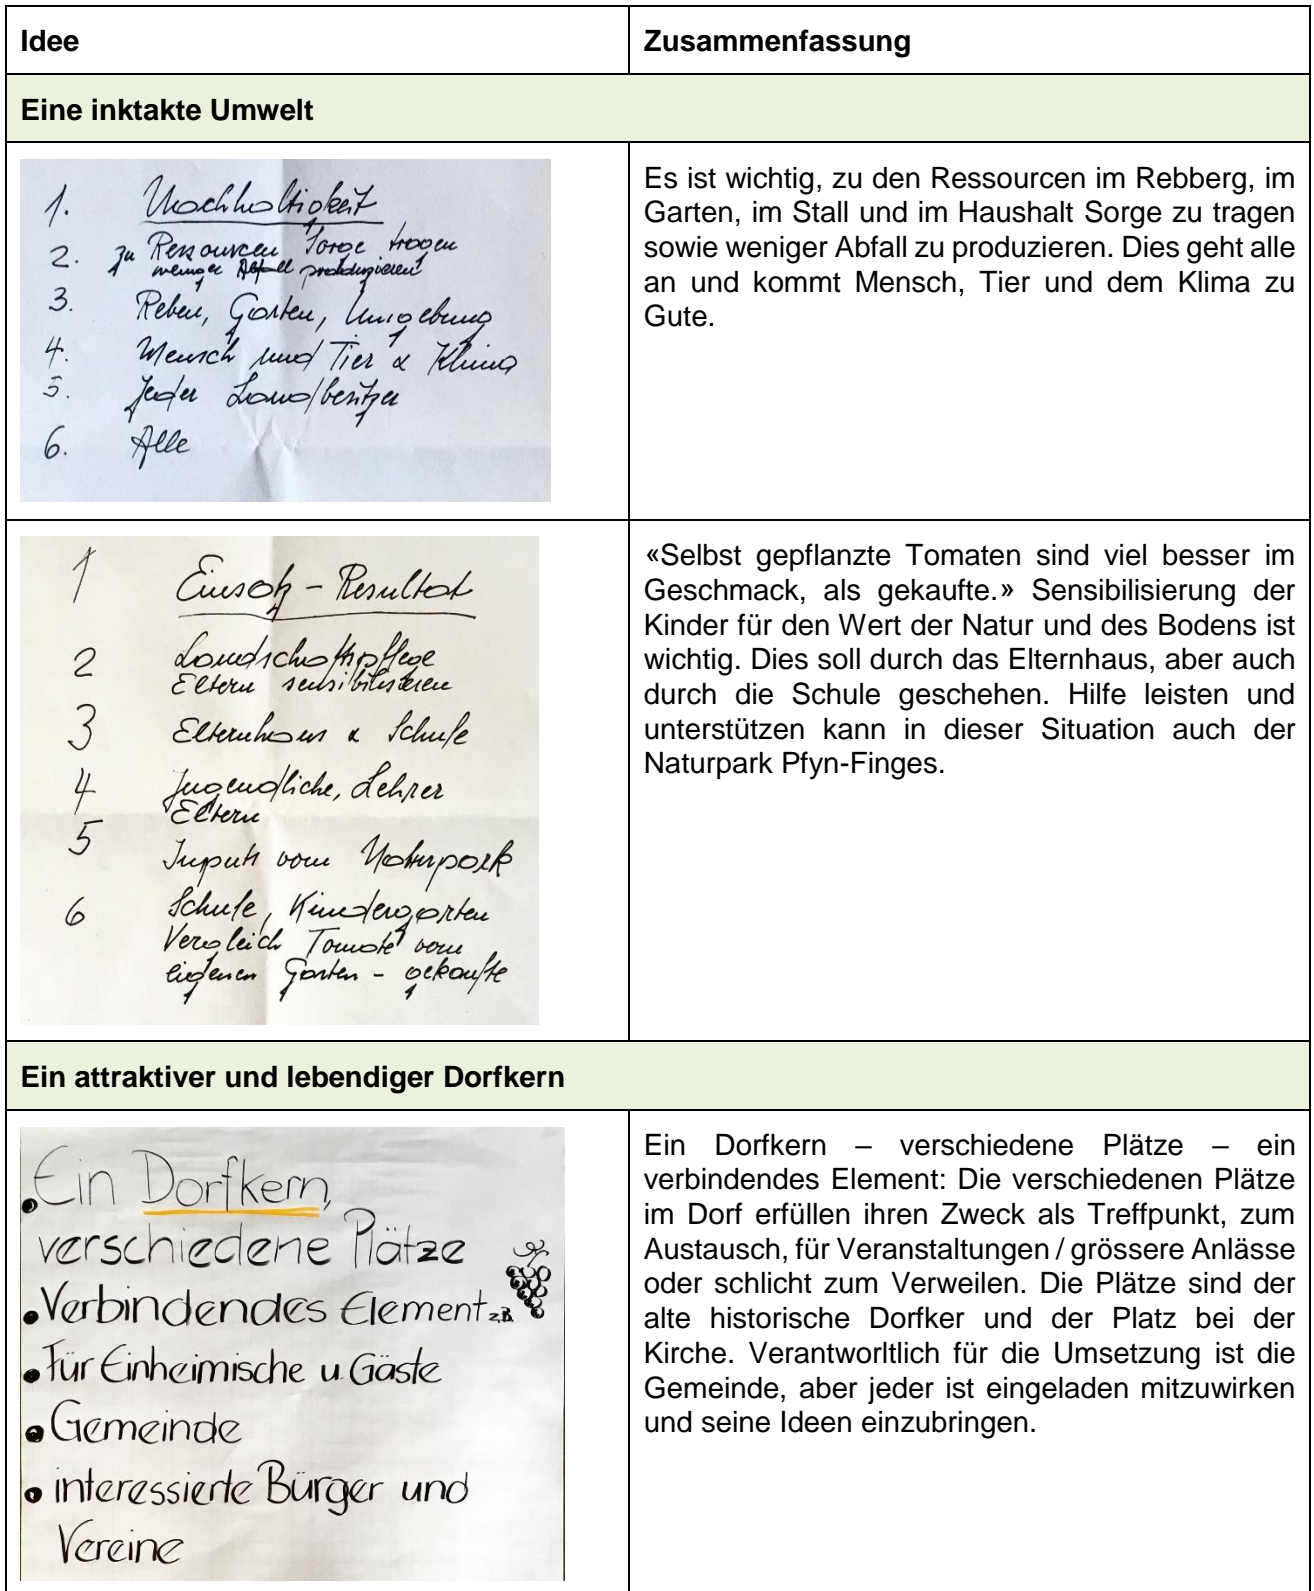 Idee
Zusammenfassung
Eine inktakte Umwelt
1. Nachhaltigkeit
2. zu Ressourcen Sorge tragen
weniger Abfall produzieren
3. Reben, Garten, Umgebung
4. Mensch und Tier & Klima
5. Jeder Landbesitzer
6. Alle
Es ist wichtig, zu den Ressourcen im Rebberg, im
Garten, im Stall und im Haushalt Sorge zu tragen
sowie weniger Abfall zu produzieren. Dies geht alle
an und kommt Mensch, Tier und dem Klima zu
Gute.
1 Einsatz - Resultat
2 Landschaftspflege
Eltern sensibilisieren
3 Elternhaus & Schule
4 Jugendliche, Lehrer
Eltern
5 Inputs vom Naturpark
6 Schule, Kindergarten
Vergleich Tomate vom
eigenen Garten - gekaufte
«Selbst gepflanzte Tomaten sind viel besser im
Geschmack, als gekaufte.» Sensibilisierung der
Kinder für den Wert der Natur und des Bodens ist
wichtig. Dies soll durch das Elternhaus, aber auch
durch die Schule geschehen. Hilfe leisten und
unterstützen kann in dieser Situation auch der
Naturpark Pfyn-Finges.
Ein attraktiver und lebendiger Dorfkern
• Ein Dorfkern,
verschiedene Plätze
• Verbindendes Element z.B.
• Für Einheimische u. Gäste
• Gemeinde
• interessierte Bürger und
Vereine
Ein Dorfkern – verschiedene Plätze – ein
verbindendes Element: Die verschiedenen Plätze
im Dorf erfüllen ihren Zweck als Treffpunkt, zum
Austausch, für Veranstaltungen / grössere Anlässe
oder schlicht zum Verweilen. Die Plätze sind der
alte historische Dorfker und der Platz bei der
Kirche. Verantworltlich für die Umsetzung ist die
Gemeinde, aber jeder ist eingeladen mitzuwirken
und seine Ideen einzubringen.